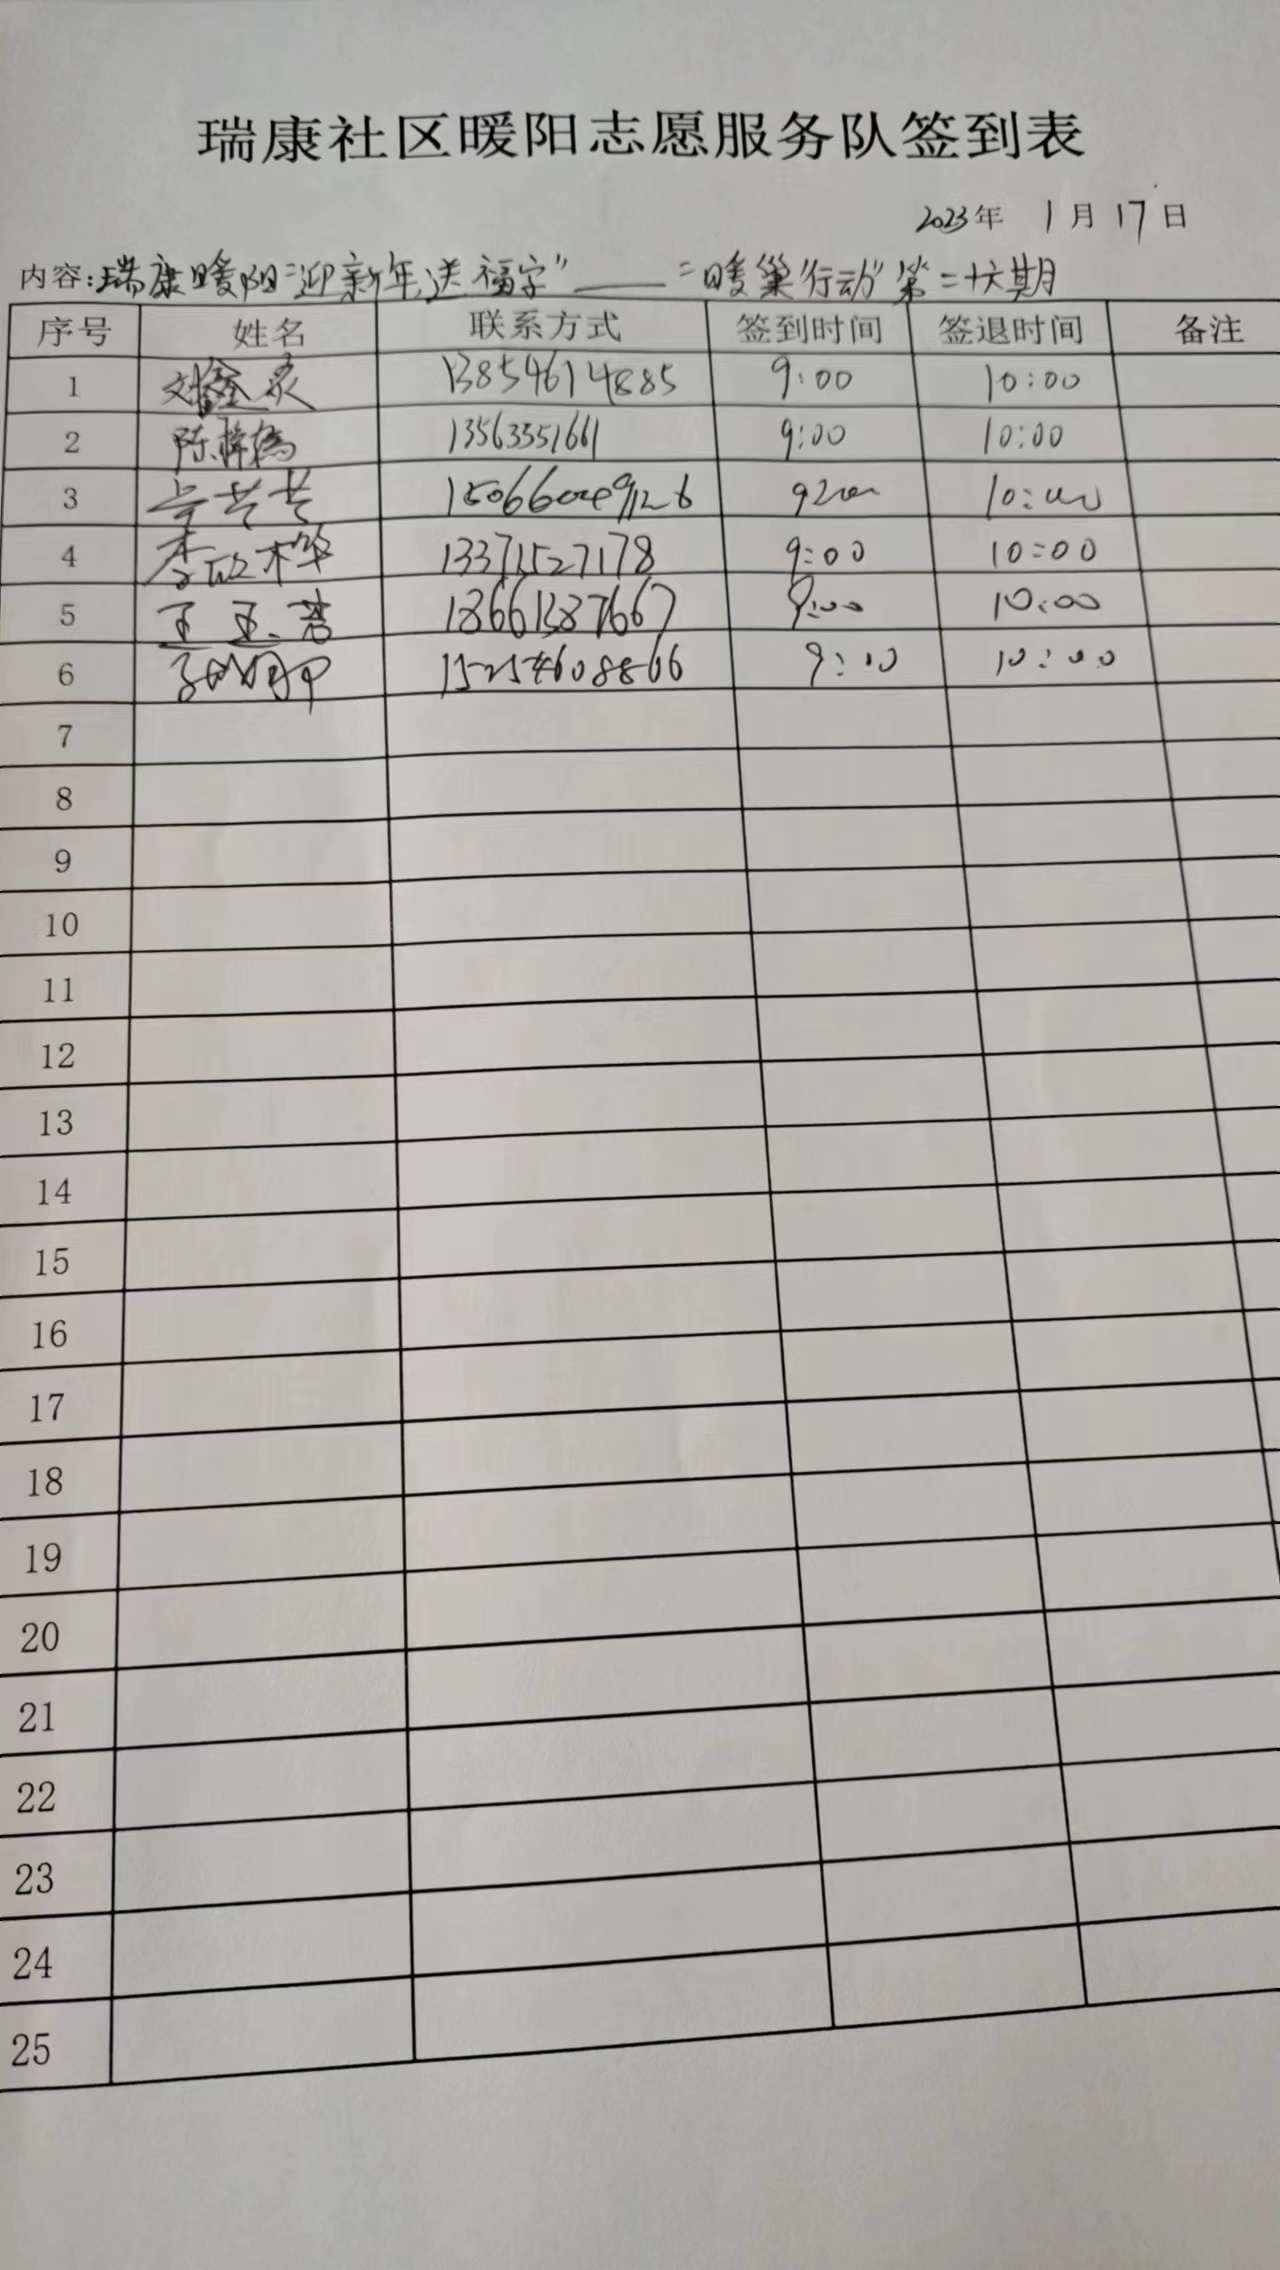 瑞康社区暖阳志愿服务队签到表
2023年 1月17日
内容:瑞康暖阳"迎新年送福字"——"暖巢行动"第二十六期
序号 姓名 联系方式 签到时间 签退时间 备注
1 刘鑫炎 13854614885 9:00 10:00
2 陈梓橋 13563351661 9:00 10:00
3 10:00
4 李欣桦 13371527178 9:00 10:00
5 王玉 18661387667 9:00 10:00
6 15254608866 9:00 10:00
7
8
9
10
11
12
13
14
15
16
17
18
19
20
21
22
23
24
25